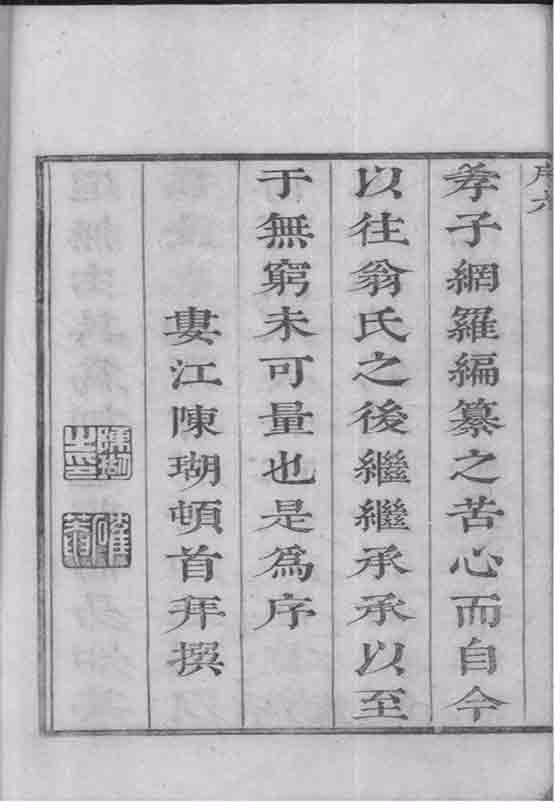 序六
孝子網羅編纂之苦心而自今
以往翁氏之後繼繼承承以至
于無窮未可量也是爲序
婁江陳瑚頓首拜撰
陳瑚之印
確菴